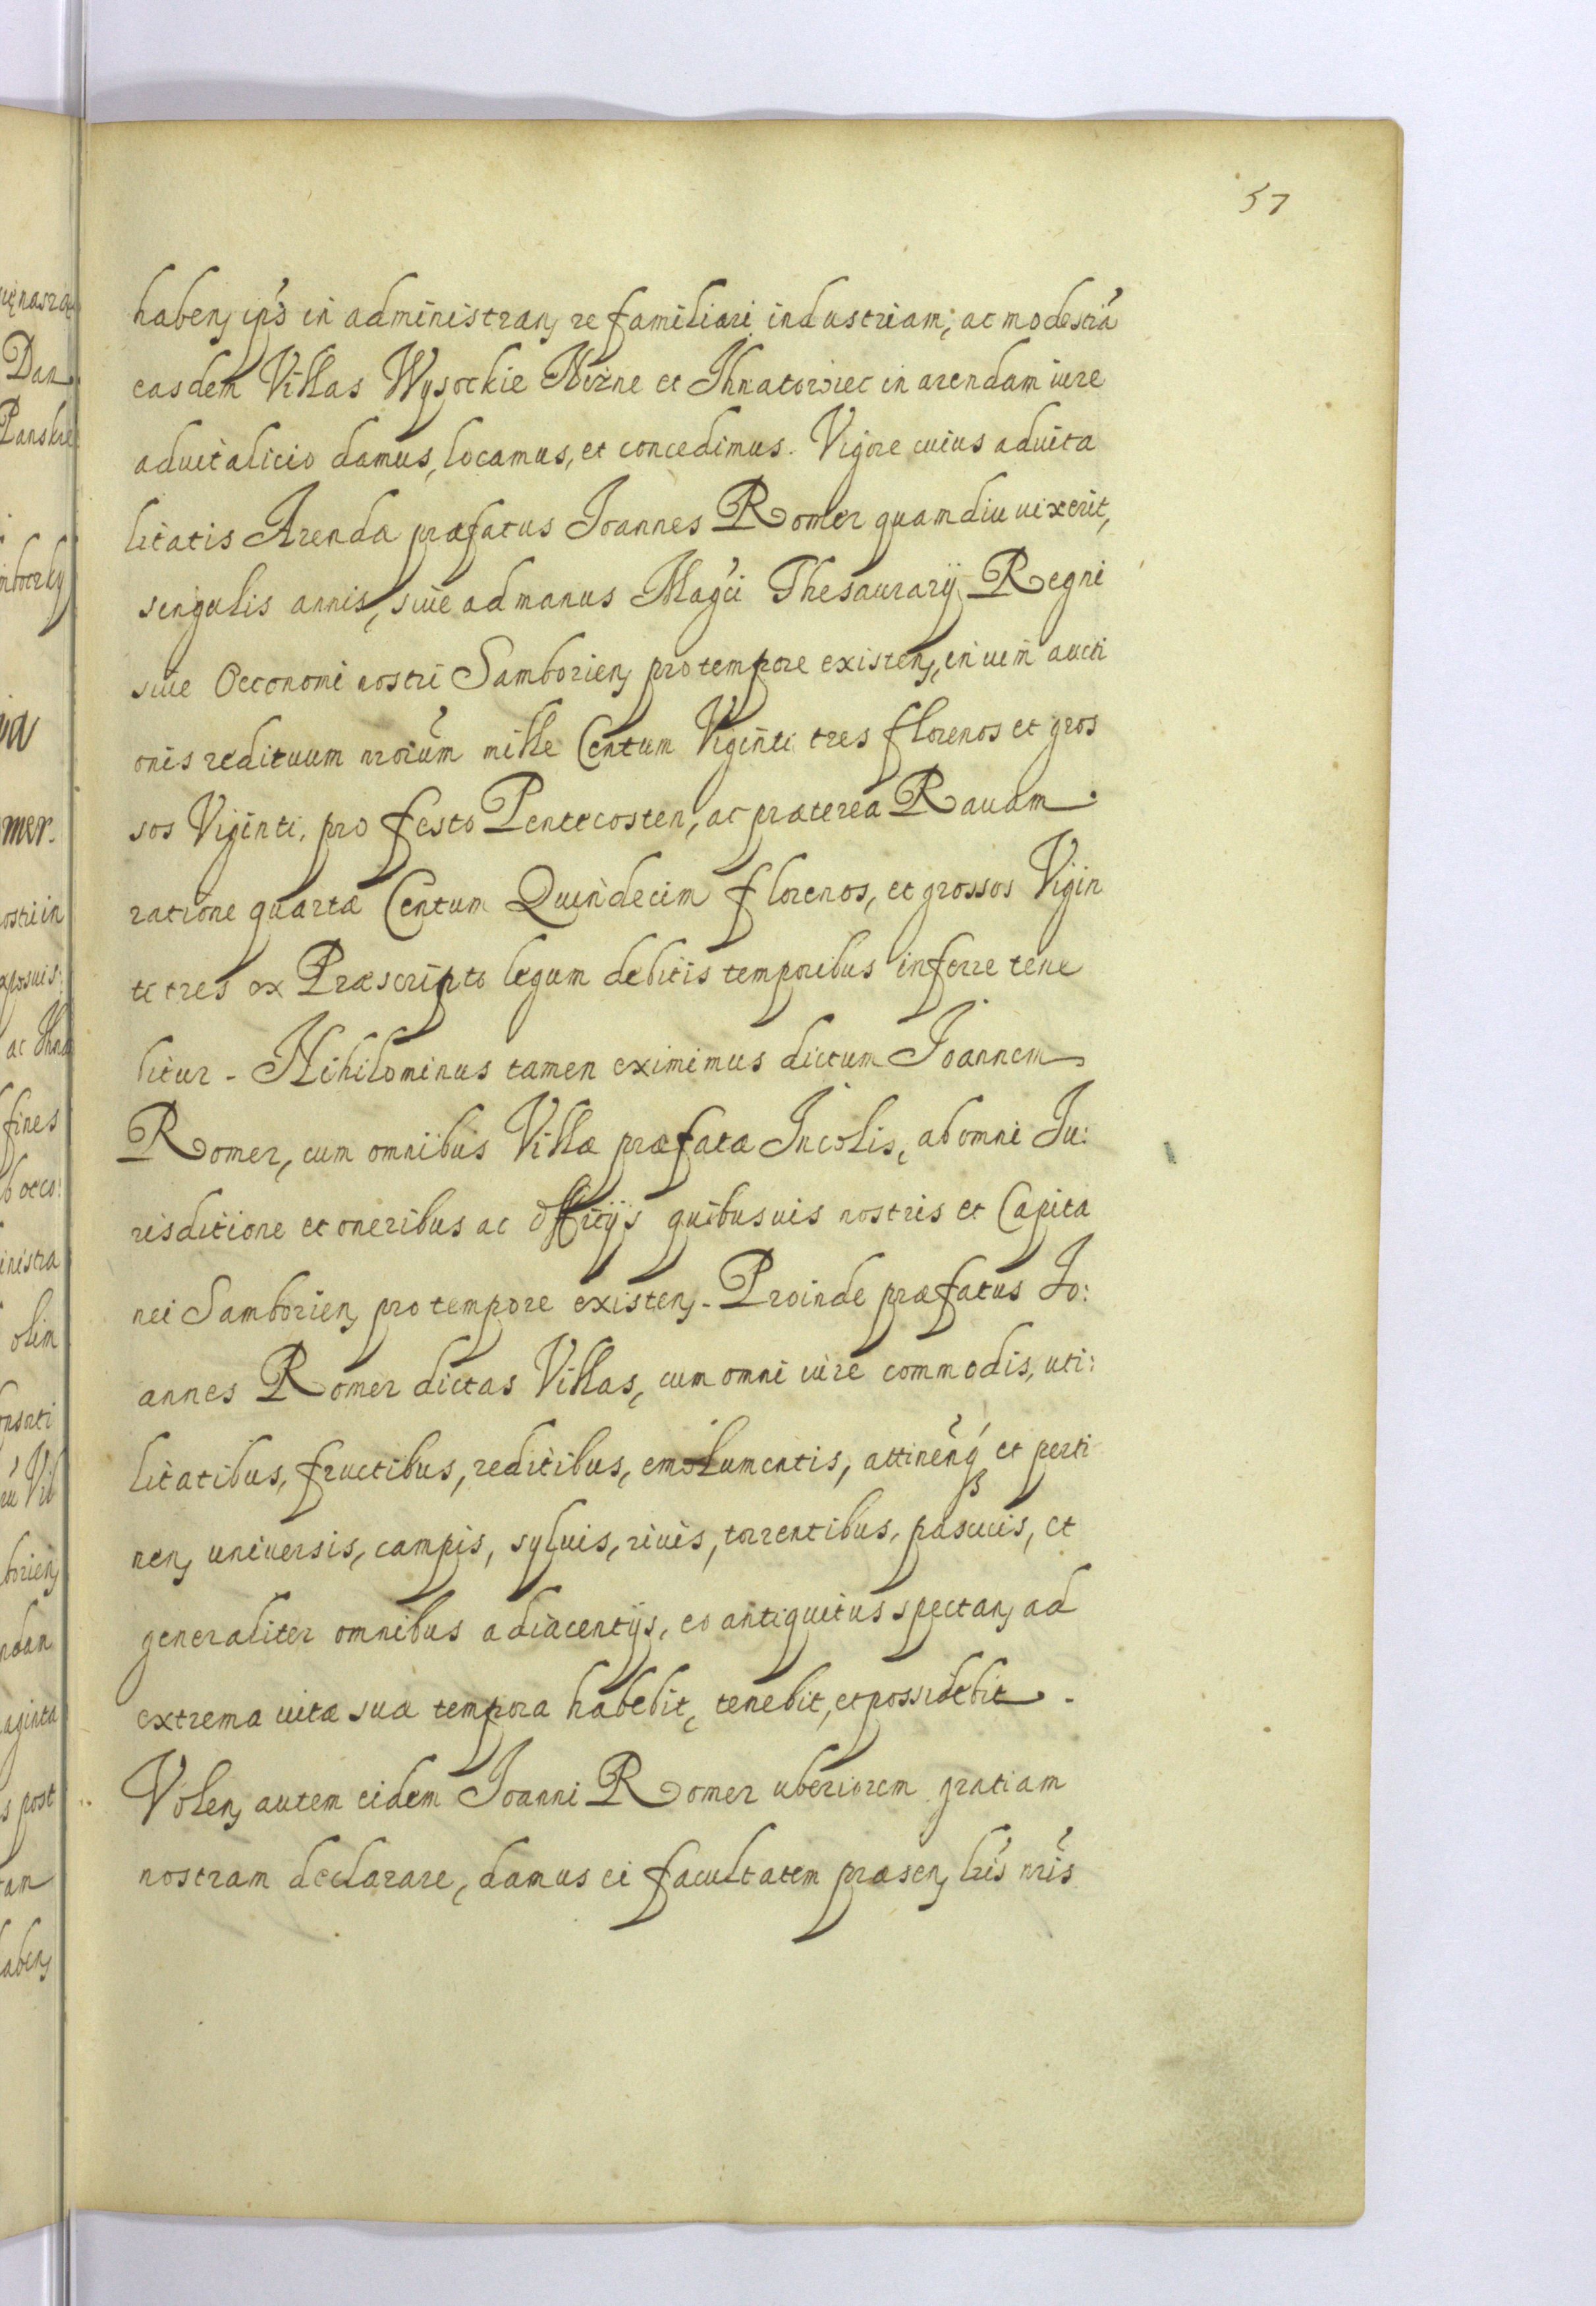 57
haben, ips in administran, re familiari industriam, ac modestiã
easdem Villas Wysockie Nizne et Ihnatowiec in arendam iure
aduitalicio damus, locamus, et concedimus. Vigore cuius aduita
litatis Arenda præfatus Ioannes Romer quamdiu uixerit,
singulis annis, siue ad manus Magci Thesaurarij Regni
siue Oeconomi nostri Samborien, pro tempore existen, in uim aucti
onis redituum nrorum mille Centum Viginti tres florenos et gros
sos Viginti, pro festo Pentecosten, ac præterea Rauam
ratione quartæ Centum Quindecim florenos, et grossos Vigin
ti tres ex Præscripto legum debitis temporibus inferre tene
bitur - Nihilominus tamen eximimus dictum Ioannem
Romer, cum omnibus Villæ præfatæ Incolis, ab omni Iu:
risditione et oneribus ac officijs quibusuis nostris et Capita
nei Samborien, pro tempore existen, - Proinde præfatus Io:
annes Romer dictas Villas, cum omni iure commodis, uti:
litatibus, fructibus, reditibus, emolumentis, attinenq et perti
nen, uniuersis, campis, syluis, riuis, torrentibus, pascuis, et
generaliter omnibus adiacentijs, eo antiquitus spectan, ad
extrema uitæ suæ tempora habebit, tenebit, et possidebit.
Volen, autem eidem Ioanni Romer uberiorem gratiam
nostram declarare, damus ei facultatem præsen, lris nris